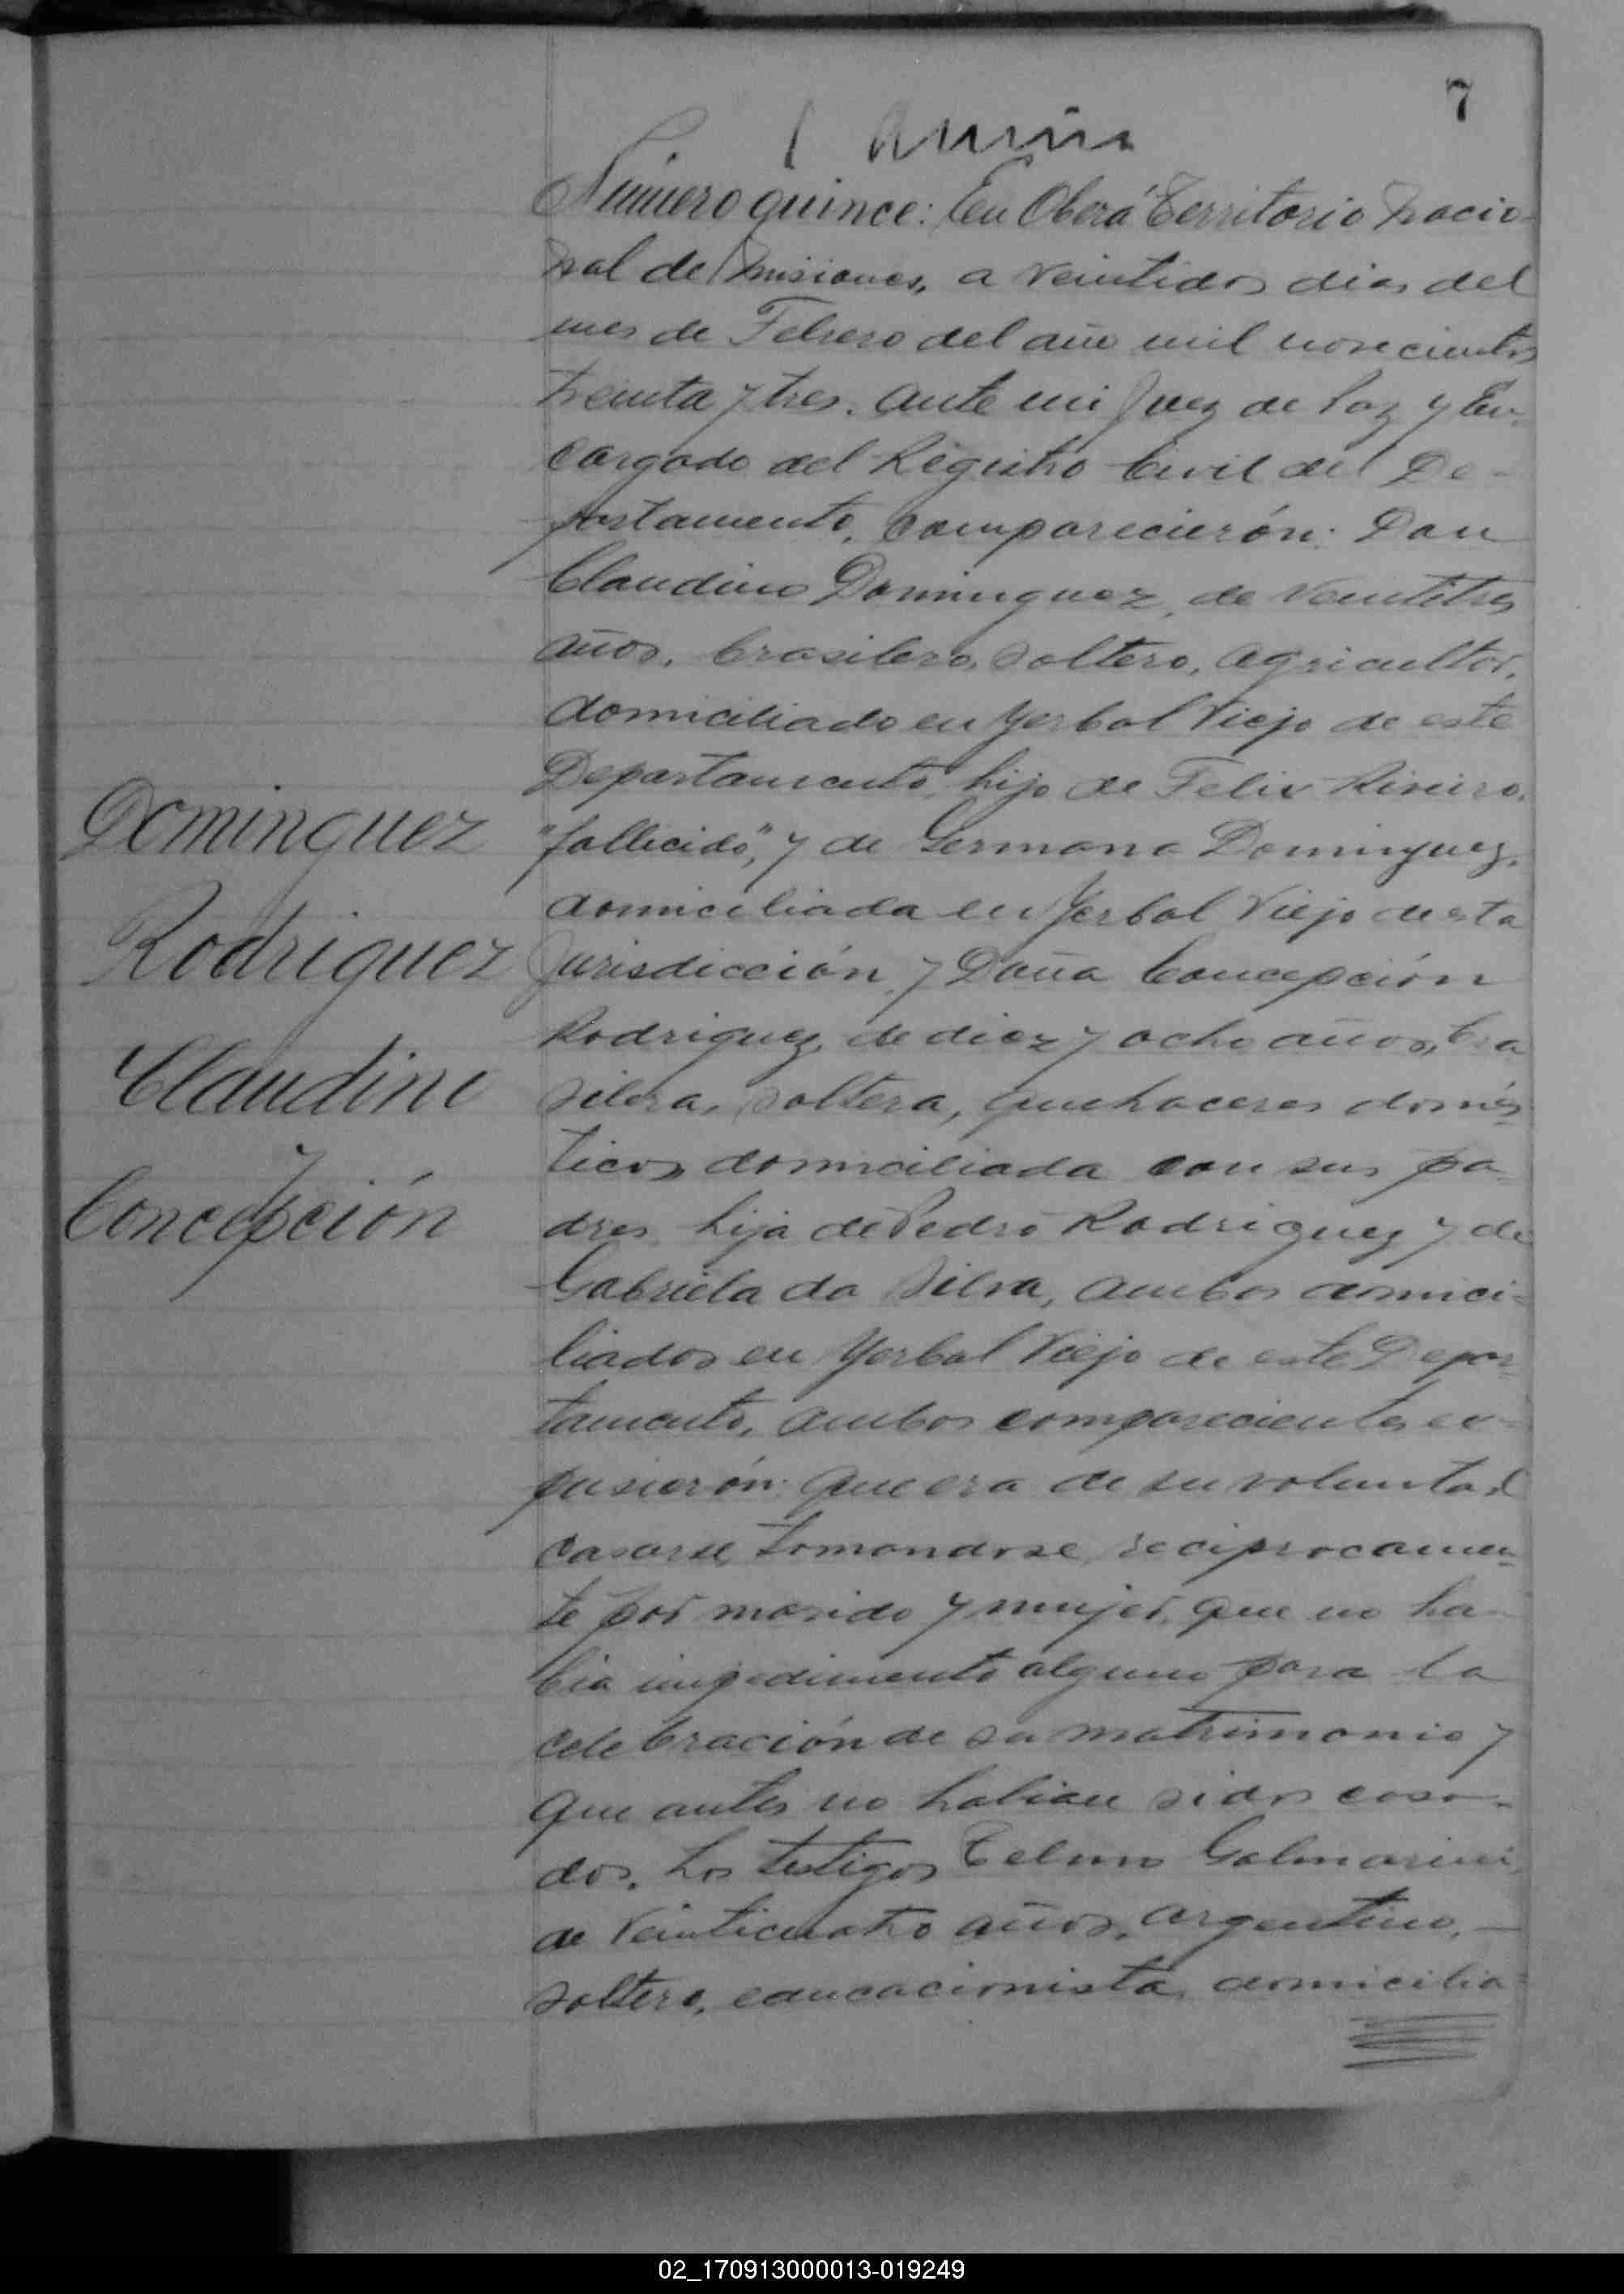 7
Número quince: En Oberá Territorio Nacio-
nal de Misiones, a veintidos dias del
mes de Febrero del año mil novecientos
treinta y tres. ante mi Juez de Paz y En-
cargado del Registro Civil del De-
partamento, comparecierón: Don
Claudino Dominguez, de veintitres
años, brasilero, soltero, agricultor,
domiciliado en Yerbal Viejo de este
Departamento, hijo de Felix
"fallecido", y de Germana Dominguez,
domiciliada en Yerbal Viejo de esta
Jurisdicción, y Doña Concepción
Rodriguez, de diez y ocho años, bra
silera, soltera, quehaceres domés
ticos, domiciliada con sus pa
dres hija de Pedro Rodriguez y de
Gabriela da Silva, ambos domici-
liados en Yerbal Viejo de este Depar-
tamento, ambos comparecientes ex-
pusierón: que era de su voluntad
casarse, tomandose reciprocamen-
te por marido y mujer, que no ha-
bia impedimento alguno para la
celebración de su matrimonio y
que antes no habian sidos casa-
dos. Los testigos Telmo Galmarini,
de veinticuatro años, argentino, —
soltero, educacionista, domicilia-
Dominguez
Rodriguez
Claudino
y
Concepción
02_170913000013-019249